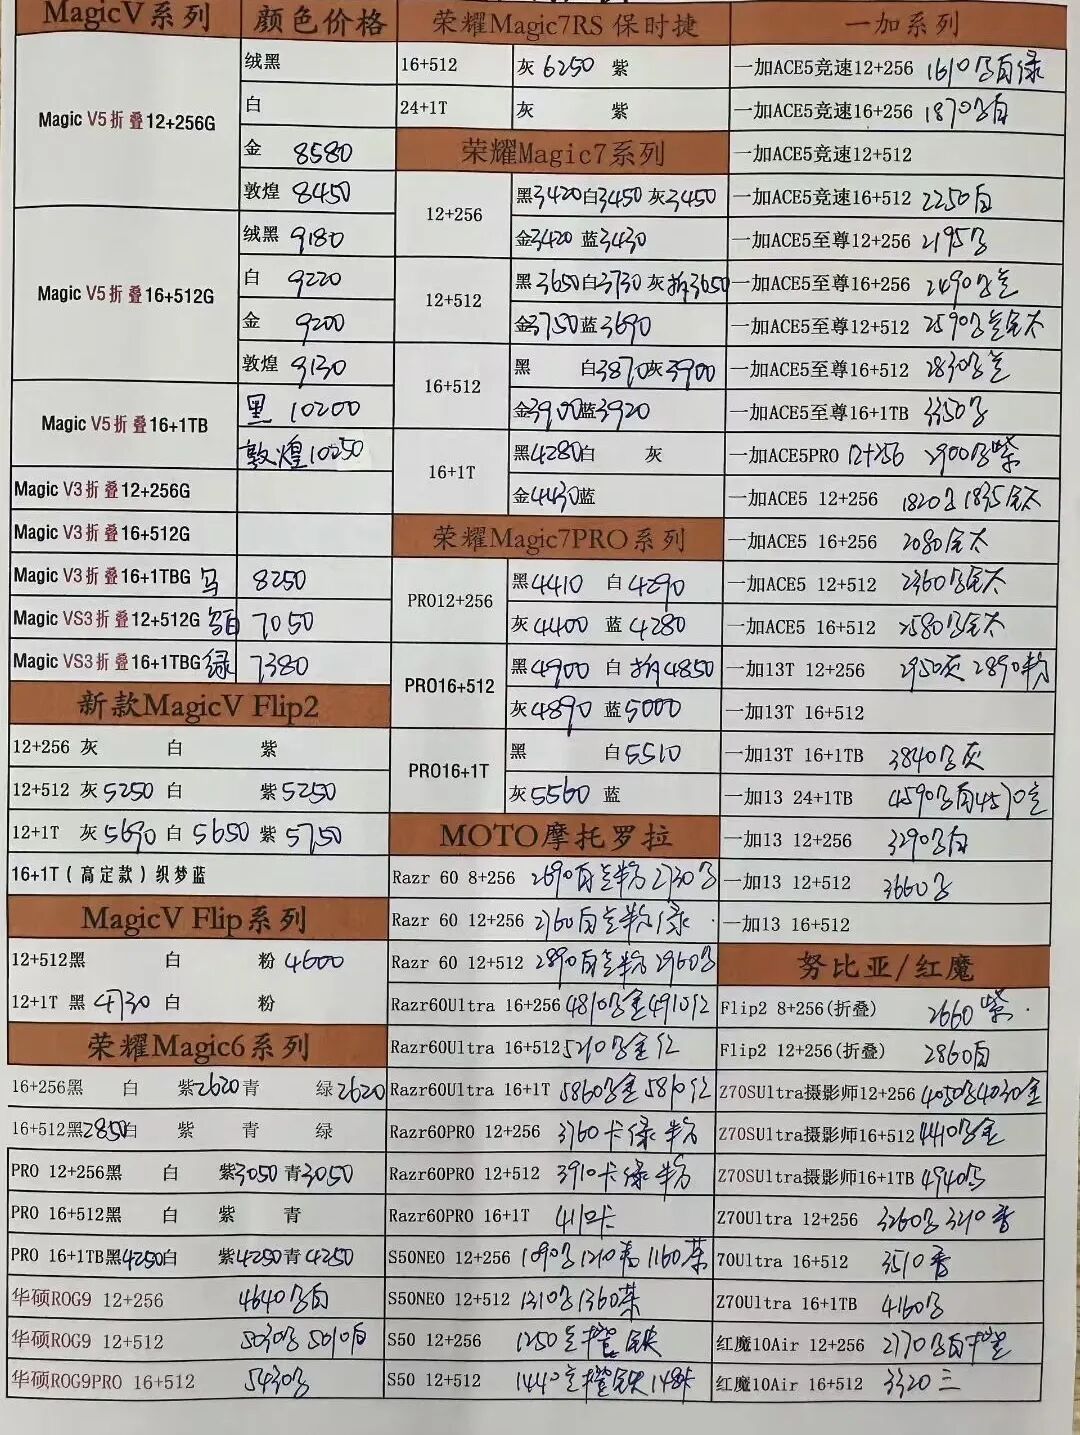 MagicV系列 颜色价格
Magic V5折叠12+256G
绒黑
白
金 8580
敦煌 8450
Magic V5折叠16+512G
绒黑 9180
白 9220
金 9200
敦煌 9130
Magic V5折叠16+1TB
黑 10200
敦煌10250
Magic V3折叠12+256G
Magic V3折叠16+512G
Magic V3折叠16+1TBG 8250
Magic VS3折叠12+512G 7050
Magic VS3折叠16+1TBG绿 7380
新款MagicV Flip2
12+256 灰 白 紫
12+512 灰5250 白 紫5250
12+1T 灰5690 白 5650 紫 5750
16+1T(高定款)织梦蓝
MagicV Flip系列
12+512黑 白 粉 4600
12+1T 黑 4730 白 粉
荣耀Magic6系列
16+256黑 白 紫2620青 绿2620
16+512黑2850白 紫 青 绿
PRO 12+256黑 白 紫3050 青3050
PRO 16+512黑 白 紫 青
PRO 16+1TB黑4250白 紫4250青4250
华硕ROG9 12+256 4640 白
华硕ROG9 12+512 5030 5010白
华硕ROG9PRO 16+512 5430
荣耀Magic7RS 保时捷
16+512 灰 6250 紫
24+1T 灰 紫
荣耀Magic7系列
12+256
黑3420白3450 灰3450
金3420 蓝3430
12+512
黑3650白3730 灰拆3650
金3750蓝3690
16+512
黑 白3870灰3900
金3900蓝3920
16+1T
黑4280白 灰
金4430蓝
荣耀Magic7PRO系列
PRO12+256
黑4410 白4290
灰4400 蓝4280
PRO16+512
黑4900 白 拆4850
灰4890 蓝5000
PRO16+1T
黑 白5510
灰5560 蓝
MOTO摩托罗拉
Razr 60 8+256 2690白 粉 2730
Razr 60 12+256 2760白 粉 绿
Razr 60 12+512 2890白 粉 2960
Razr60Ultra 16+256 4810 金4910红
Razr60Ultra 16+512 5210 金红
Razr60Ultra 16+1T 5860 金5810红
Razr60PRO 12+256 3760卡绿粉
Razr60PRO 12+512 3910卡绿粉
Razr60PRO 16+1T 卡
S50NEO 12+256 1090 1210 1160
S50NEO 12+512 1310 1360
S50 12+256 1250 橙
S50 12+512 1440 橙
一加系列
一加ACE5竞速12+256 1610 白绿
一加ACE5竞速16+256 1870 白
一加ACE5竞速12+512
一加ACE5竞速16+512 2250白
一加ACE5至尊12+256 2195
一加ACE5至尊16+256 2490
一加ACE5至尊12+512 2590 钛
一加ACE5至尊16+512 2830
一加ACE5至尊16+1TB 3350
一加ACE5PRO 12+256 2900 紫
一加ACE5 12+256 1820 1835钛
一加ACE5 16+256 2080钛
一加ACE5 12+512 2360 钛
一加ACE5 16+512 2580 钛
一加13T 12+256 2950灰 2890粉
一加13T 16+512
一加13T 16+1TB 3840 灰
一加13 24+1TB 4590 白4570
一加13 12+256 3290 白
一加13 12+512 3660
一加13 16+512
努比亚/红魔
Flip2 8+256(折叠) 2660紫
Flip2 12+256(折叠) 2860白
Z70SUltra摄影师12+256 4050 4030金
Z70SUltra摄影师16+512 4410 金
Z70SUltra摄影师16+1TB 4940
Z70Ultra 12+256 3260 3210
70Ultra 16+512 3510
Z70Ultra 16+1TB 4160
红魔10Air 12+256 2770 白橙
红魔10Air 16+512 3320三